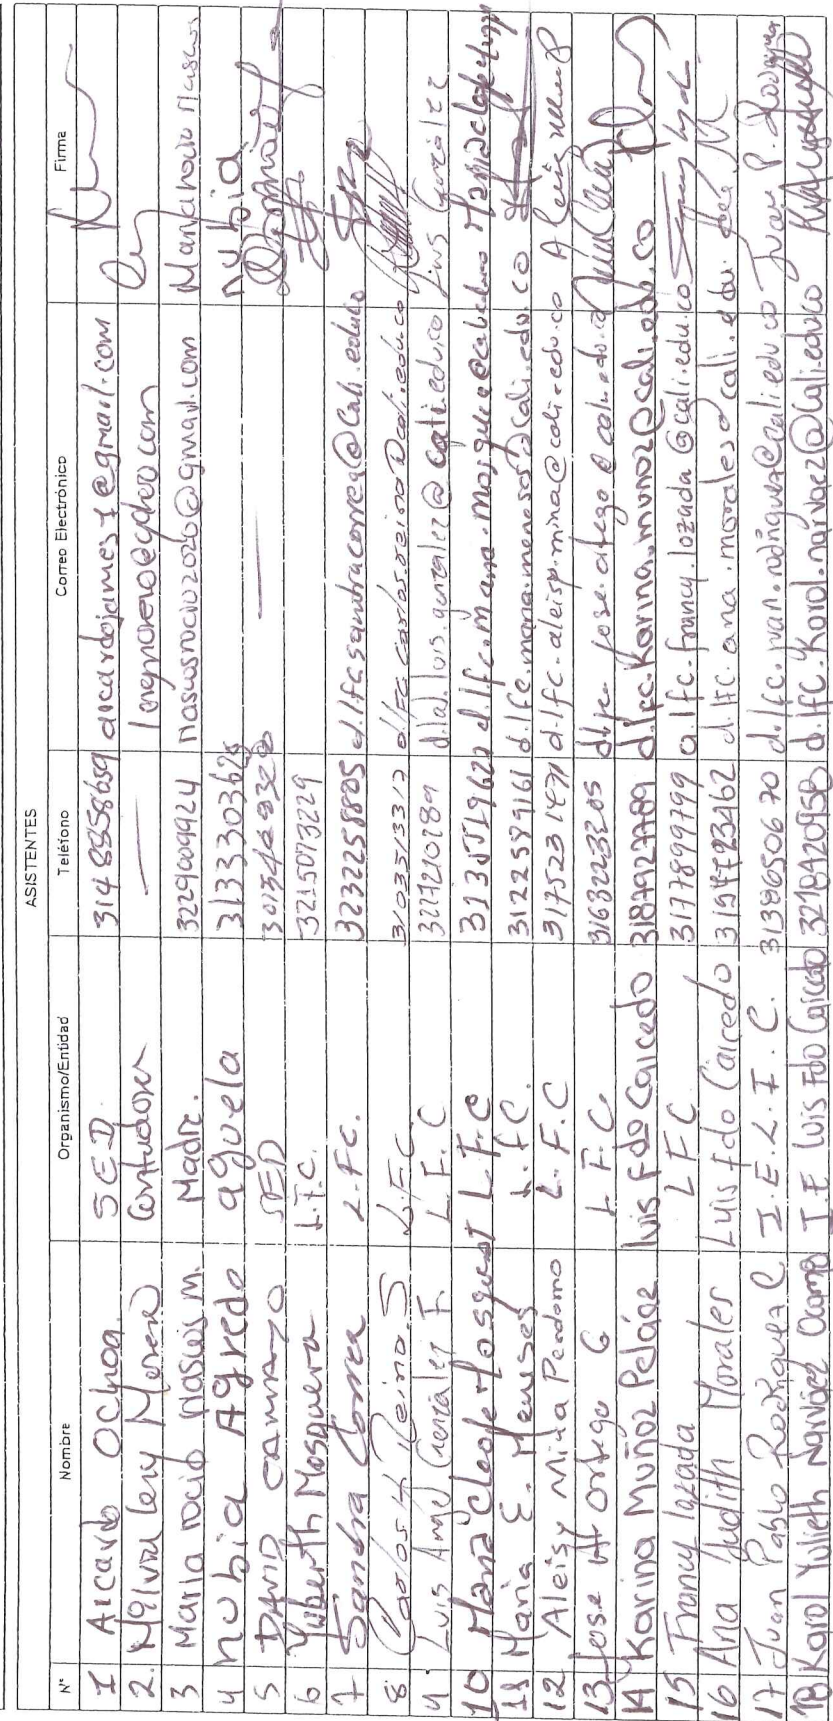 ASISTENTES
N° Nombre Organismo/Entidad Teléfono Correo Electrónico Firma
1 Arcardo Ochoa SED 3148558659 arcardojames7@gmail.com
2. Lery Moreno Contratadora —
3 Maria rocio Nascos M. Madre. 3229009924 nascosrocio2020@gmail.com Maria rocio Nascos
4 nubia Agredo aguela 3133303628 nubia
5 DAVID SED —
6 Yuberth Mosquera L.F.C. 3215073229
7 Sandra Correa L.F.C. 3232258805 d.lfc.sandra.correa@cali.edu.co
8 Carlos H Reina S L.F.C. 3103513317 d.lfc.carlos.reina@cali.edu.co
9 Luis Angel González F. L.F.C 3217210289 d.lal.luis.gonzalez@cali.edu.co Luis González
10 Maria Cleofe Mosquera L.F.C
11 Maria E. Meneses L.F.C. 3122589161 d.lfc.maria.meneses@cali.edu.co
12 Aleisy Mina Perdomo L.F.C 3175231471 d.lfc.aleisy.mina@cali.edu.co
13 Jose Ar Ortega G L.F.C. 3163223205
14 Karina Muñoz Peláez Luis Fdo Caicedo 3187927789 d.lfc.Karina.munoz@cali.edu.co
15 Francy lozada LFC 3177899799 d.lfc.francy.lozada@cali.edu.co
16 Ana Judith Morales Luis fdo Caicedo 3154723462 d.lfc.ana.morales@cali.edu.
17 Juan Pablo Rodriguez C I.E.L.F.C. 3138650670 d.lfc.juan.rodriguez@cali.edu.co Juan P. Rodriguez
18 Karol Yulieth Narváez Ocampo I.E Luis Fdo Caicedo 3218420958 d.lfc.Karol.narvaez@cali.edu.co